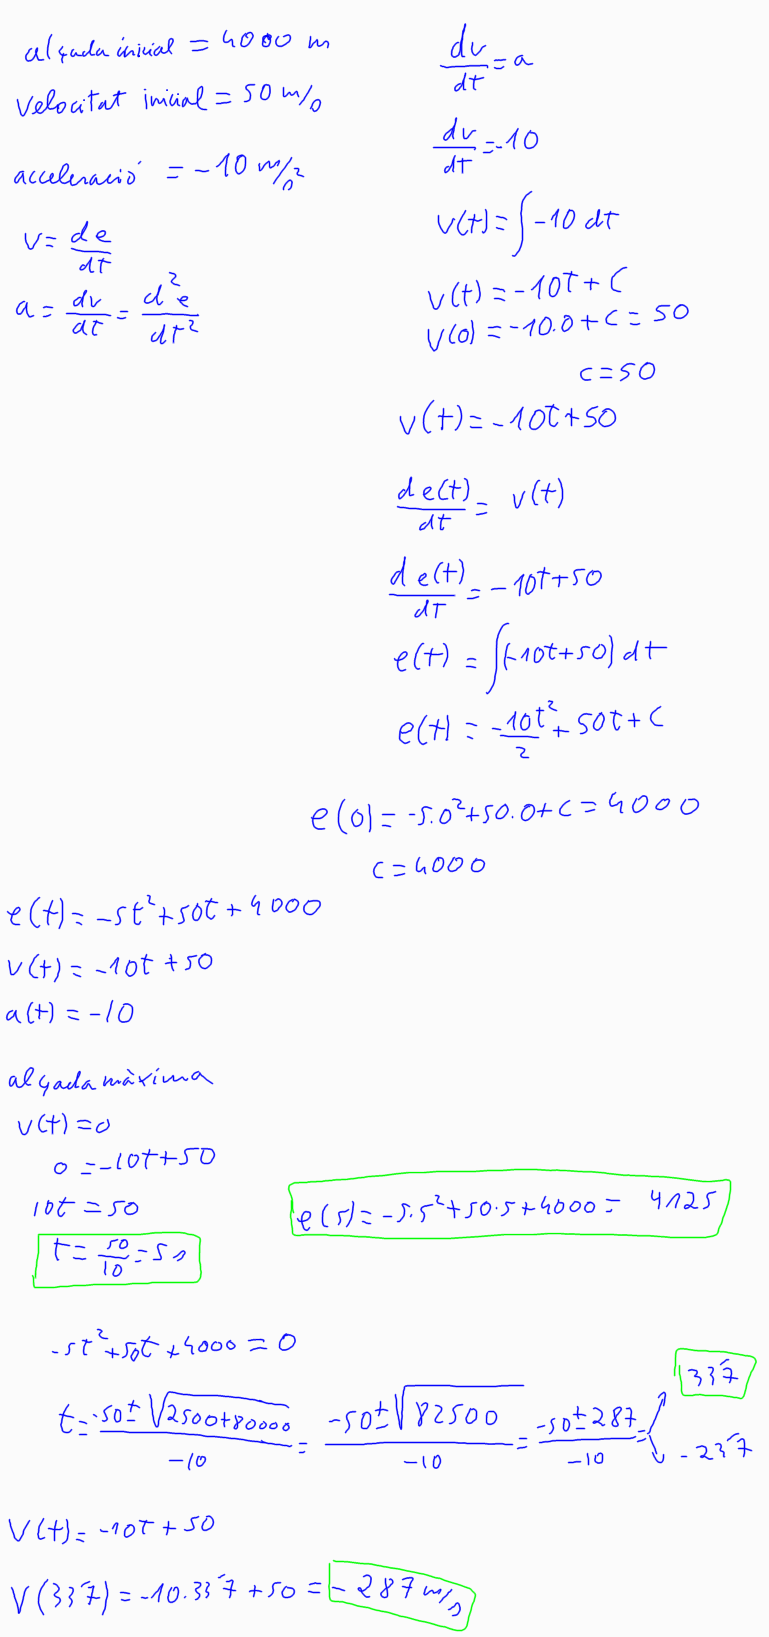 alçada inicial = 4000 m
velocitat inicial = 50 m/s
acceleració = -10 m/s²
v = de/dt
a = dv/dt = d²e/dt²
dv/dt = a
dv/dt = -10
v(t) = ∫ -10 dt
v(t) = -10t + C
v(0) = -10.0 + c = 50
c = 50
v(t) = -10t + 50
de(t)/dt = v(t)
de(t)/dt = -10t + 50
e(t) = ∫(-10t + 50) dt
e(t) = -10t²/2 + 50t + C
e(0) = -5.0² + 50.0 + c = 4000
c = 4000
e(t) = -5t² + 50t + 4000
v(t) = -10t + 50
a(t) = -10
alçada màxima
v(t) = 0
0 = -10t + 50
10t = 50
t = 50/10 = 5 s
e(5) = -5.5² + 50.5 + 4000 = 4125
-5t² + 50t + 4000 = 0
t = (-50 ± √(2500 + 80000))/-10 = (-50 ± √82500)/-10 = (-50 ± 287)/-10 =
33'7
-23'7
v(t) = -10t + 50
v(33'7) = -10.33'7 + 50 = -287 m/s